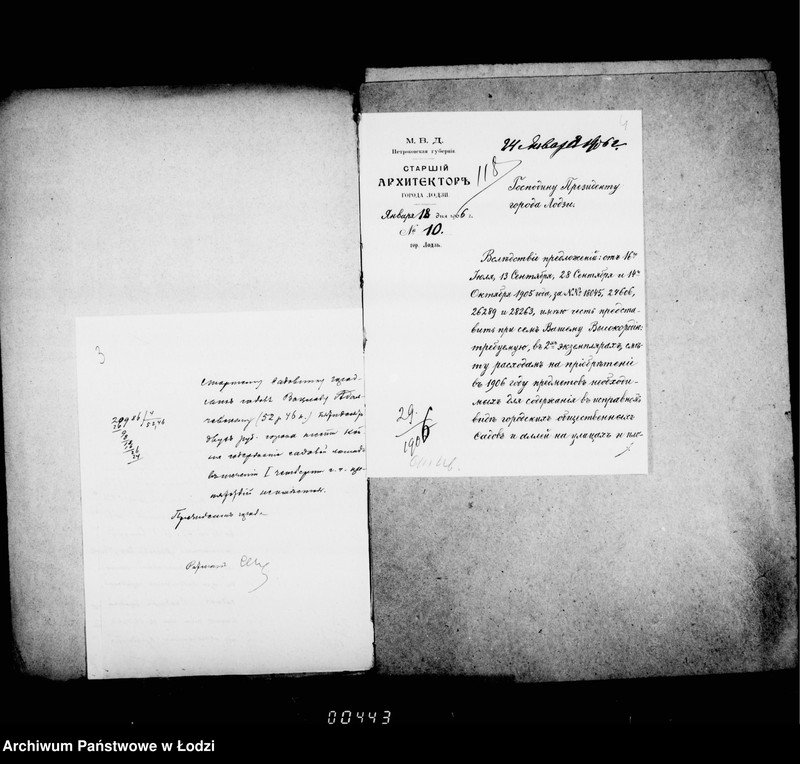 3
Старшему Садовнику город-
скихъ садовъ Вацлаву
(52 р 46 к.)
двухъ руб. сорока шести коп.
на содержаніе садовой лошади
въ теченіи I четверти с. г.
Президентъ города
209 86 / 4
52,46
4
24 Января 1906 г.
М. В. Д.
Петроковская губернія.
СТАРШІЙ
АРХИТЕКТОРЪ
ГОРОДА ЛОДЗИ
Января 18 дня 1906 г.
№ 10.
гор. Лодзь.
118
Господину Президенту
города Лодзи.
Вслѣдствіе предложеній: отъ 16го
Іюля, 13 Сентября, 28 Сентября и 14го
Октября 1905 года, за №№ 18045, 24606,
26289 и 28263, имѣю честь предста-
вить при семъ Вашему Высокородію
требуемую, въ 2хъ экземплярахъ, смѣ-
ту расходамъ на пріобрѣтеніе
въ 1906 году предметовъ необходи-
мыхъ для содержанія въ исправномъ
видѣ городскихъ общественныхъ
садовъ и аллей на улицахъ и пло-
29
1906
00443
Archiwum Państwowe w Łodzi